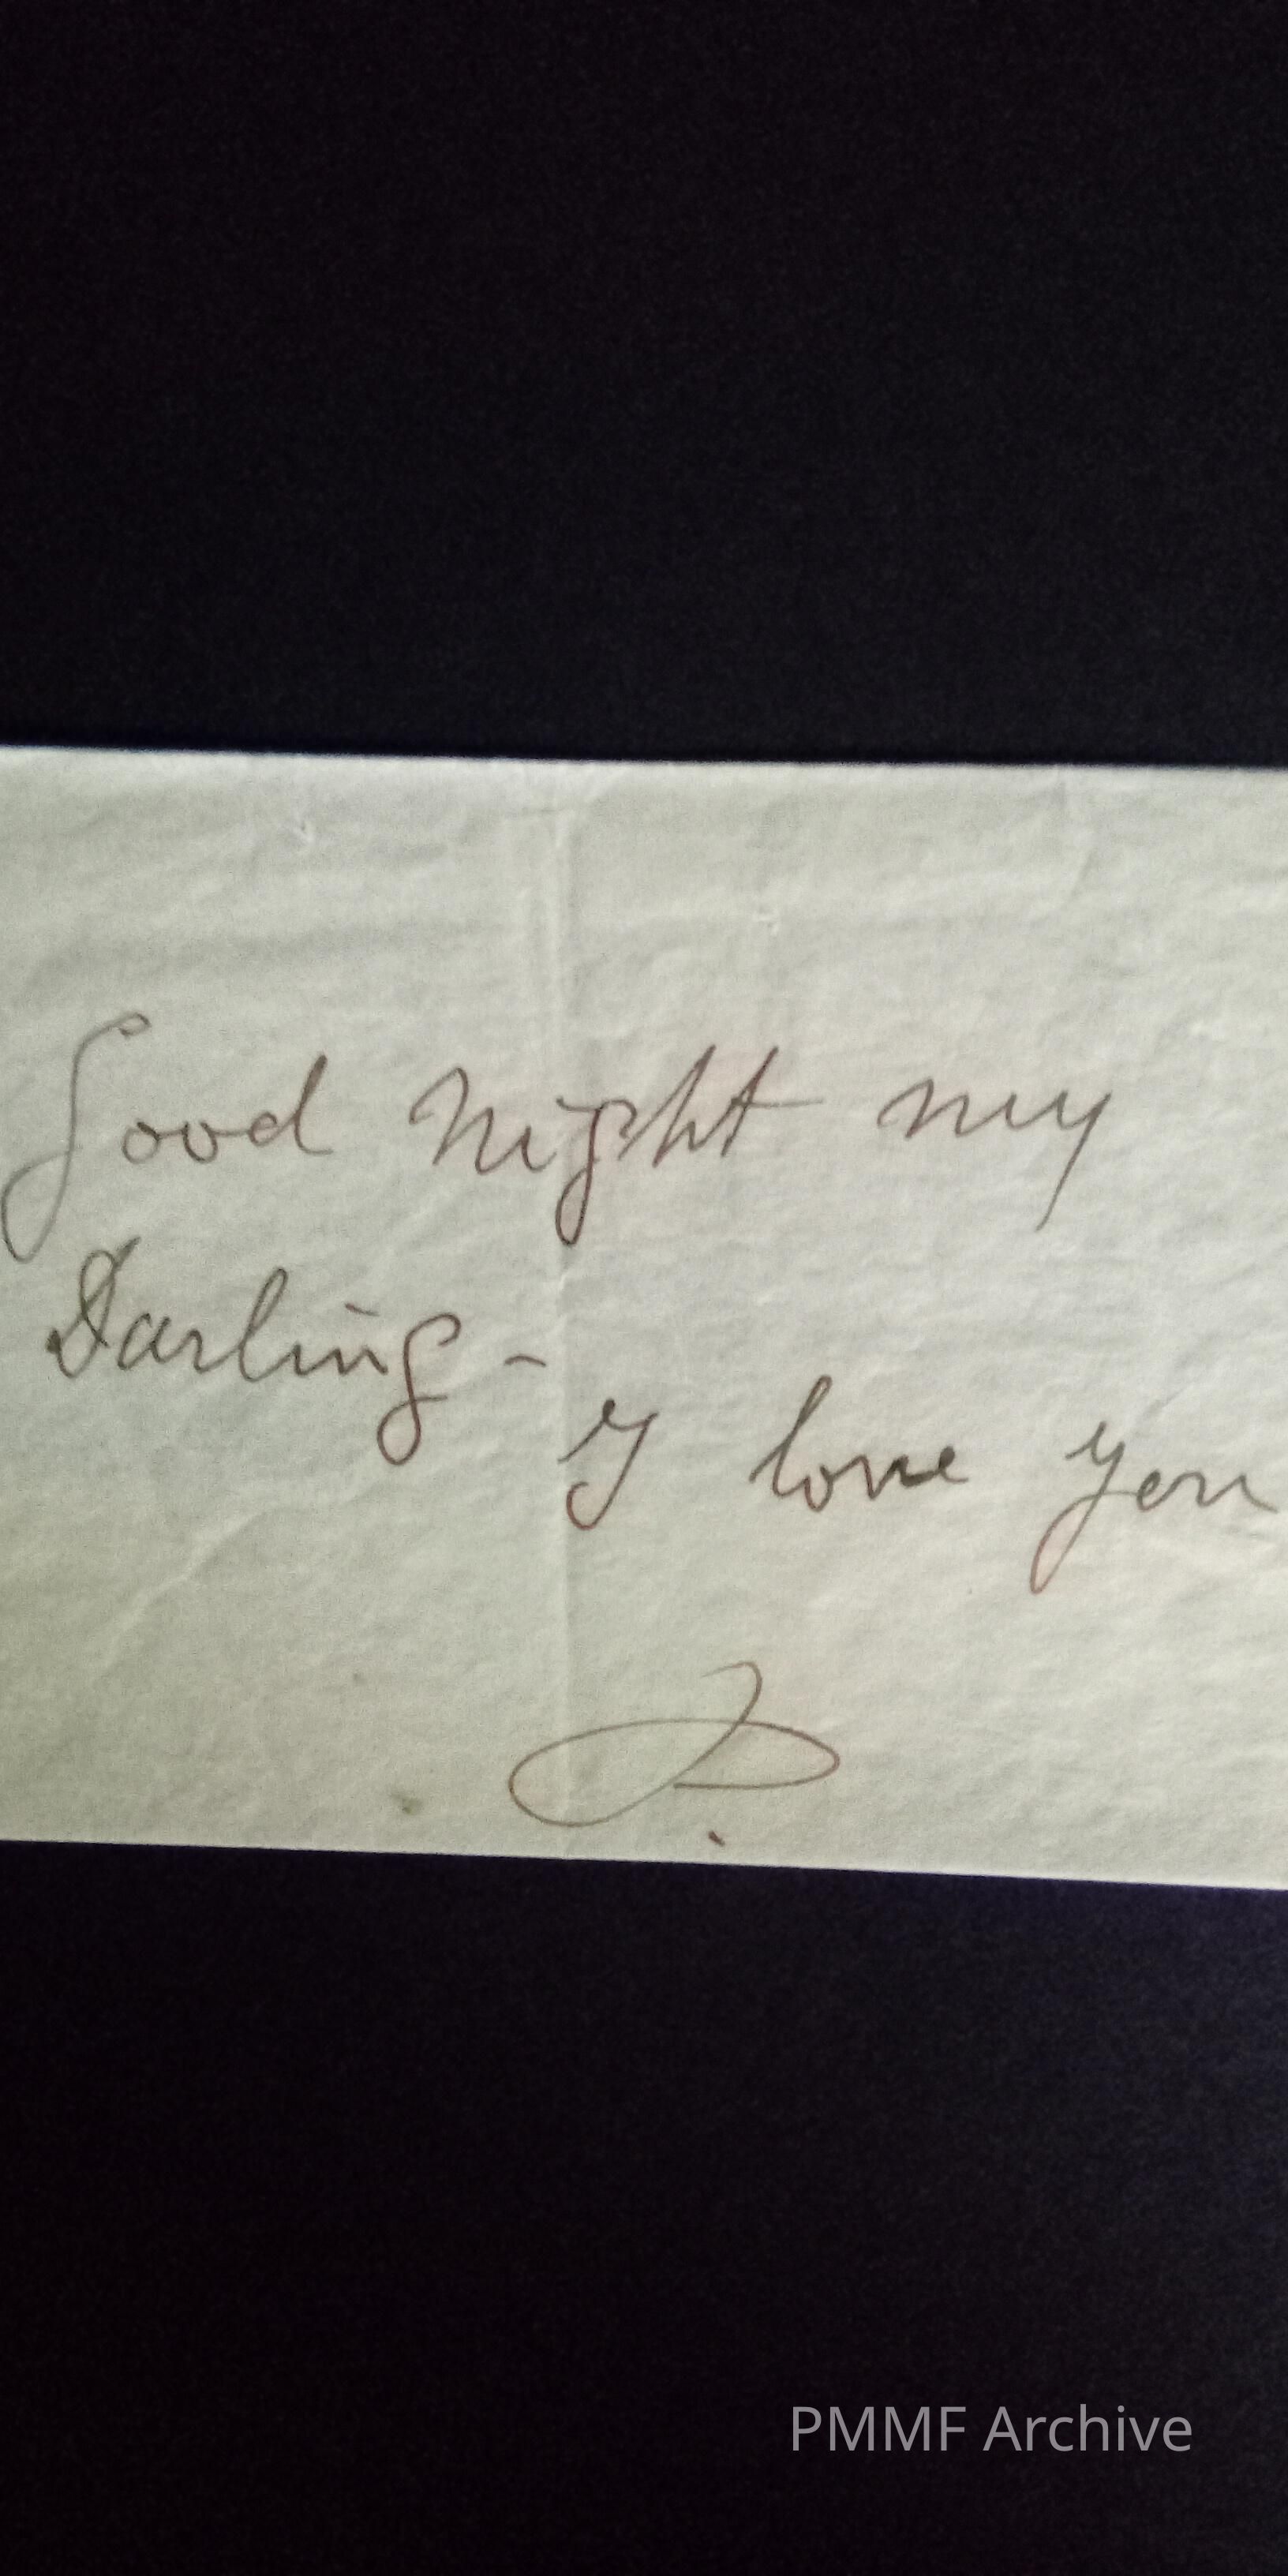 Good Night my
Darling -
I love you
PMMF Archive